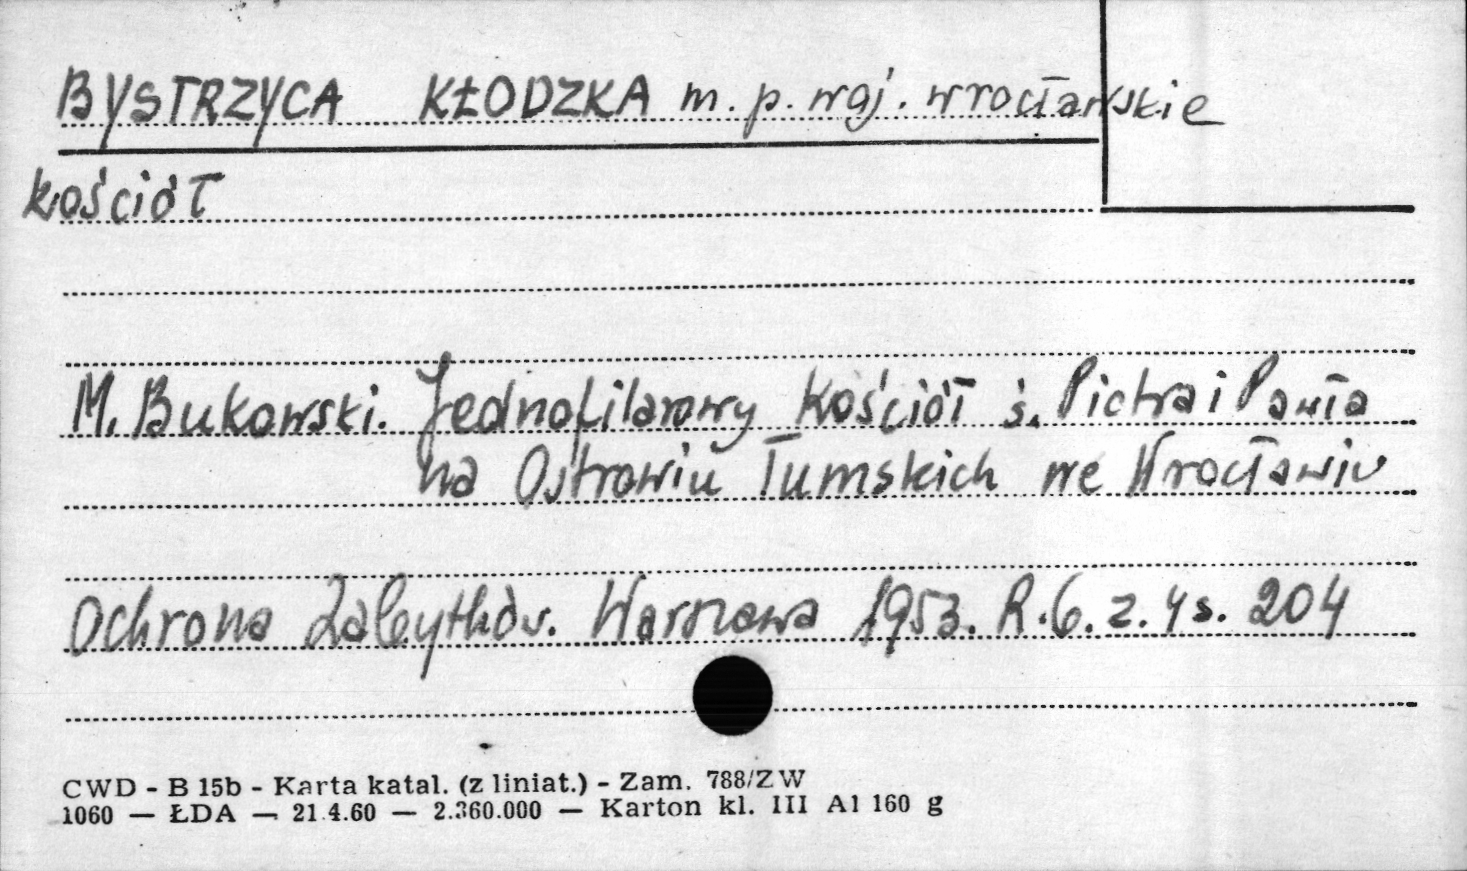 BYSTRZYCA KŁODZKA m. p. woj. wrocławskie
kościół
M. Bukowski. Jednofilarowy kościół ś. Piotra i Pawła
na Ostrowiu Tumskich we Wrocławiu
Ochrona Zabytków. Warszawa 1953. R. 6. z. 4 s. 204
CWD - B 15b - Karta katal. (z liniat.) - Zam. 788/ZW
1060 — ŁDA — 21.4.60 — 2.360.000 — Karton kl. III A1 160 g